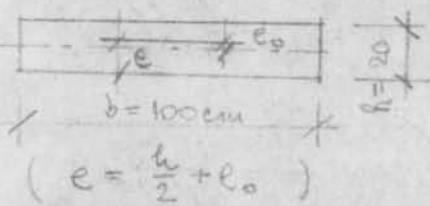 e e₀
h = 20
b = 100 cm
( e = h/2 + e₀ )